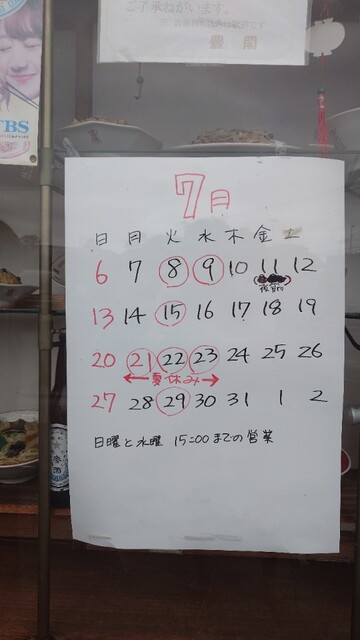 ご了承ねがいます。
TBS
7月
日 月 火 水 木 金 土
6 7 8 9 10 11 12
13 14 15 16 17 18 19
20 21 22 23 24 25 26
夏休み
27 28 29 30 31 1 2
日曜と水曜 15:00までの営業